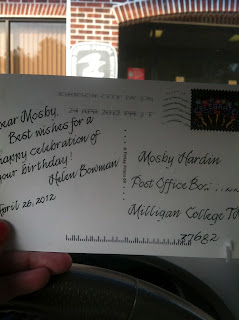 Dear Mosby,
Best wishes for a
happy celebration of
your birthday!
Helen Bowman
April 26, 2012
24 APR 2012 PM 2 T
Mosby Hardin
Post Office Box
Milligan College TN
37682